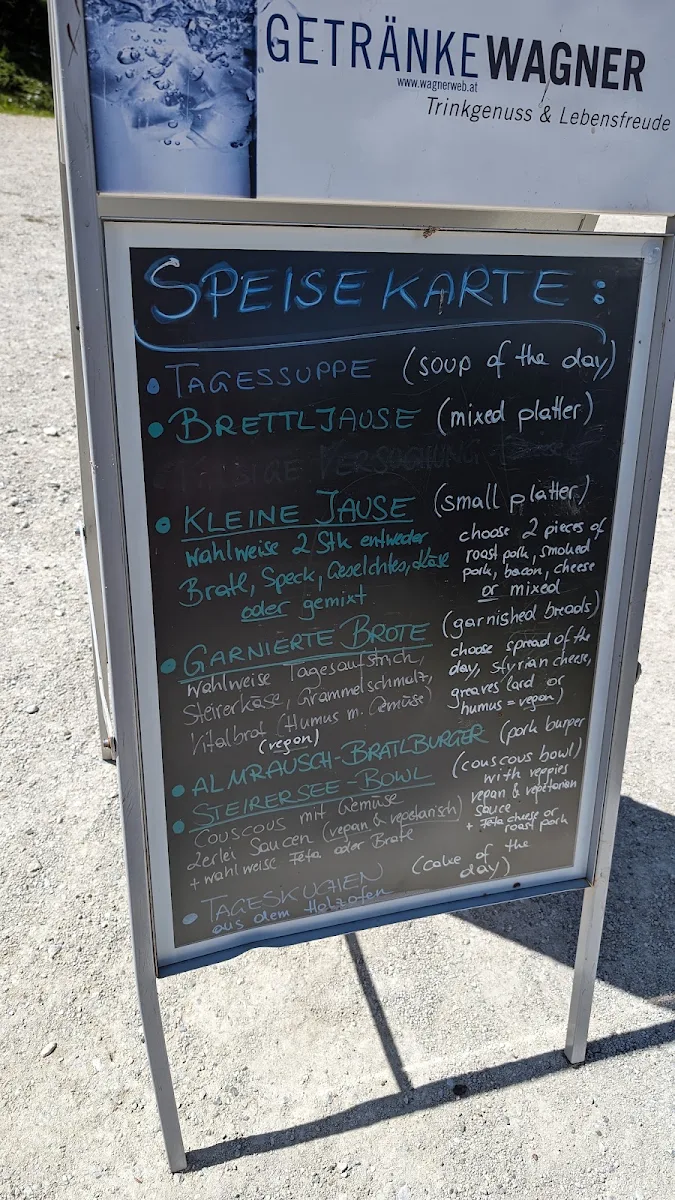 GETRÄNKEWAGNER
www.wagnerweb.at
Trinkgenuss & Lebensfreude
SPEISEKARTE:
• TAGESSUPPE (soup of the day)
• BRETTLJAUSE (mixed platter)
VERSUCHUNG
• KLEINE JAUSE (small platter)
wahlweise 2 Stk entweder
Bratl, Speck, Geselchtes, Käse
oder gemixt
choose 2 pieces of
roast pork, smoked
pork, bacon, cheese
or mixed
• GARNIERTE BROTE (garnished breads)
wahlweise Tagesaufstrich,
Steirerkäse, Grammelschmalz,
Vitalbrot (Humus m. Gemüse)
(vegan)
choose spread of the
day, styrian cheese,
greaves lard or
humus = vegan)
• ALMRAUSCH-BRATLBURGER (pork burger
• STEIRERSEE-BOWL (couscous bowl)
COUSCOUS mit Gemüse
2erlei Saucen (vegan & vegetarisch)
+ wahlweise Feta oder Bratl
with veggies
vegan & vegetarian
sauce
+ Feta cheese or
roast pork
• TAGESKUCHEN (cake of the
day)
aus dem Holzofen